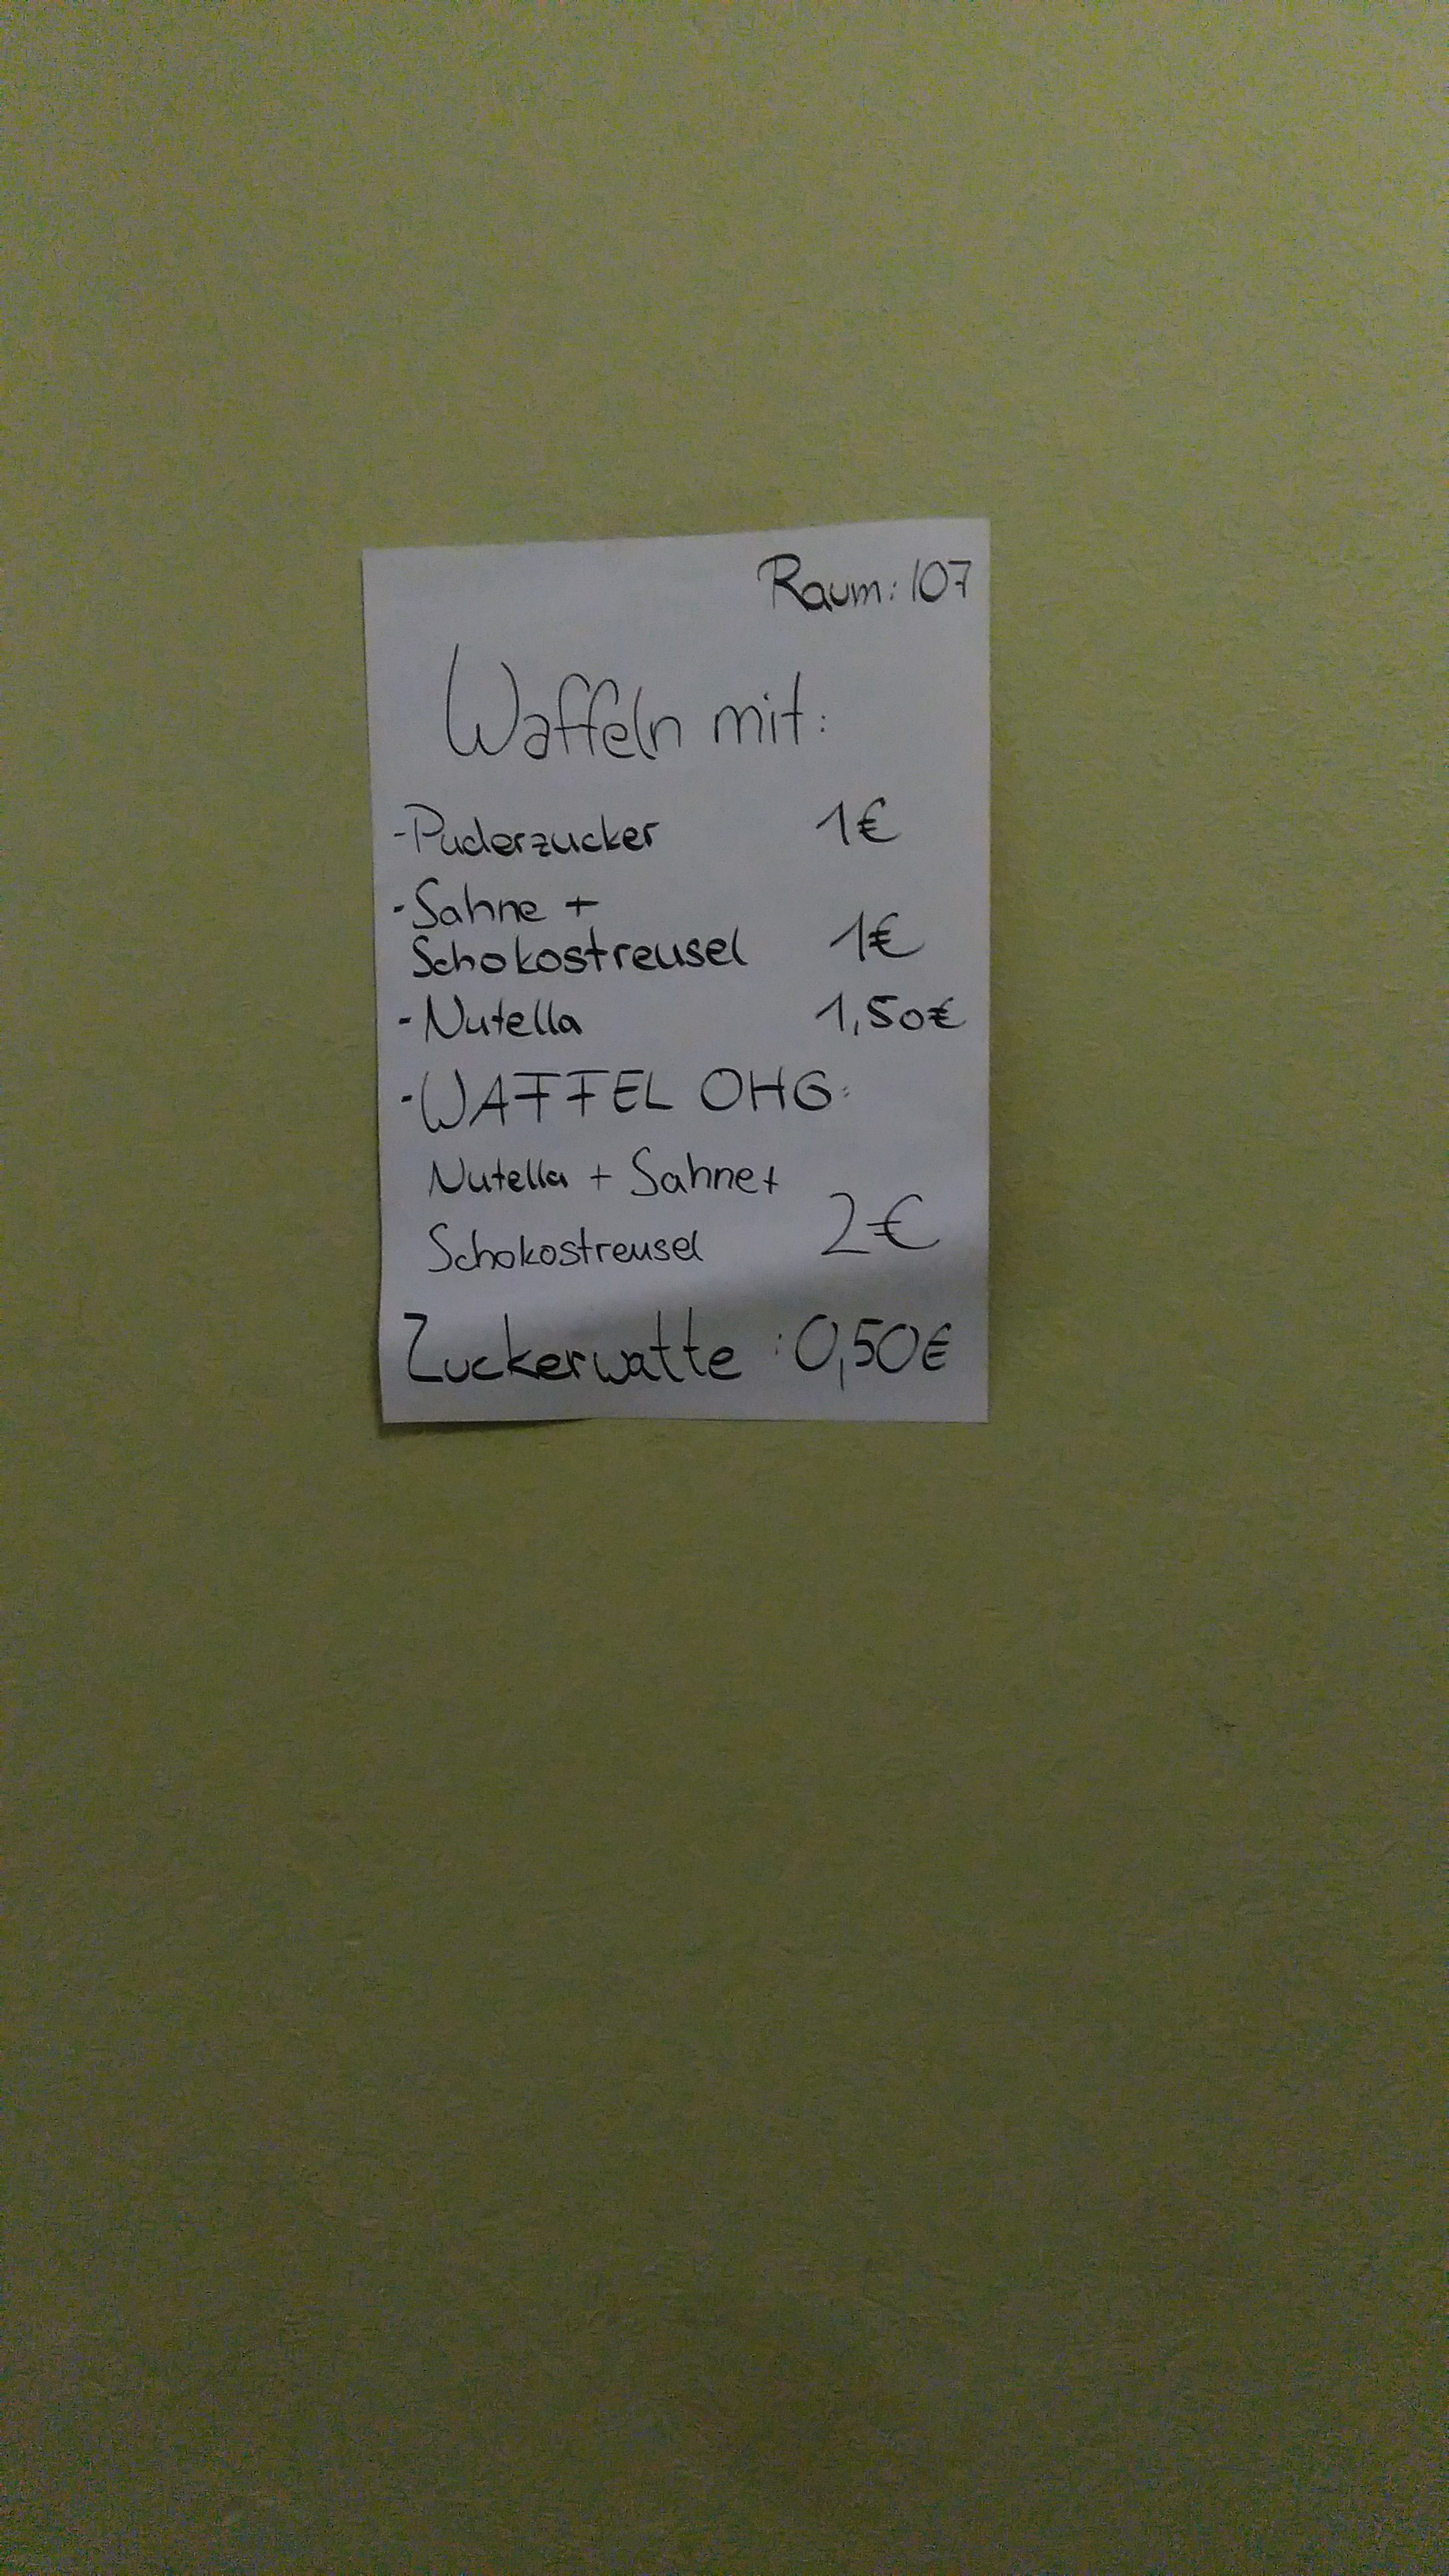 Raum: 107
Waffeln mit:
-Puderzucker 1€
-Sahne +
Schokostreusel 1€
-Nutella 1,50€
-WAFFEL OHG:
Nutella + Sahne+
Schokostreusel 2€
Zuckerwatte : 0,50€